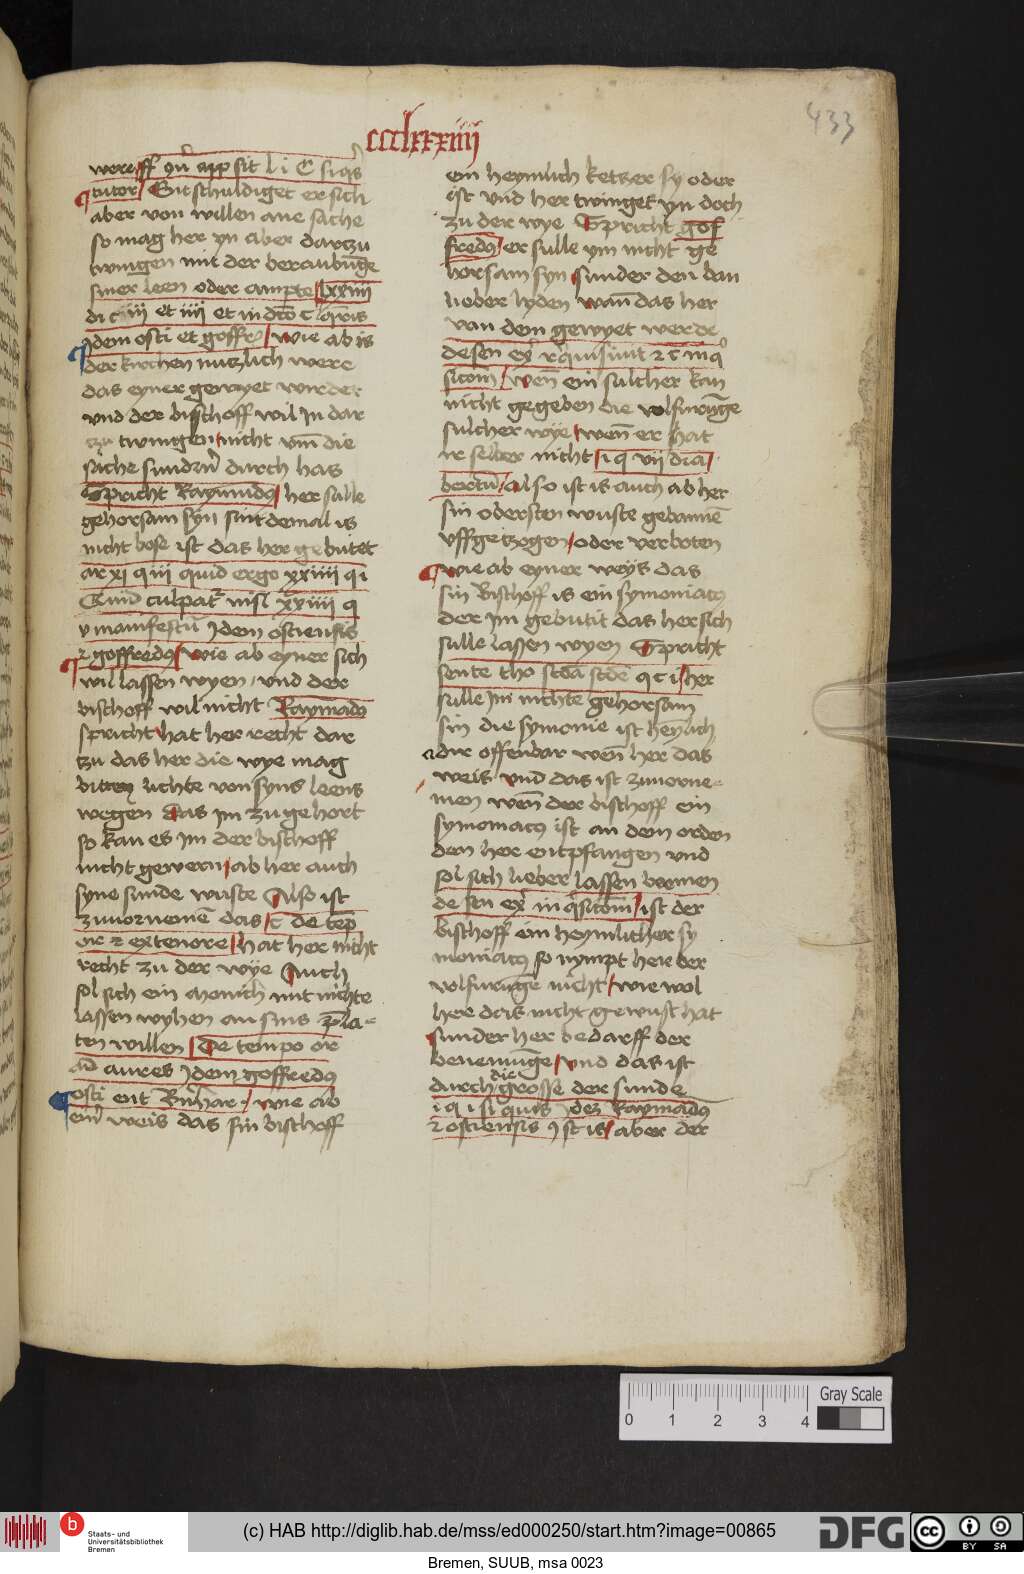 433
ccclxxxiiii
were ff qn̄ app sit l i C si qͥs
tutor Entschuldiget er sich
aber von willen ane sache
so mag her yn aber dartzu
twingen mit der beraubūge
siner leen oder ampte lxxiiii
di c iij et iiij et in dc̄o c l
ydem osti et goffr wie ab is
der kirchen nuczlich were
das eyner gewyet wurde
vnd der bisschoff wil in dar
czu twingen nicht vm̄ die
sache sundern̄ durch has
Spricht Raymundꝯ her sulle
gehorsam syn sint demal is
nicht bose ist das her gebutet
ar xj q iii quid ergo xxiiii q i
Quid culpatᷣ nisi xxiiii q
v manifestū ydem ostiensis
⁊ goffredꝯ wie ab eyner sich
wil lassen wyen vnd der
bischoff wil nicht Raymūdꝯ
spricht hat her recht dar
tzu das her die wye mag
bitten lichte von syns leens
wegen das im zu gehort
so kan es im der bischoff
nicht gewern ab her auch
syne sunde wuste Also ist
zuuornemē das c de tēp
or ⁊ exteriore hat her nicht
recht zu der wye Auch
sol sich ein monich mit nichte
lassen wyhen an sins p̄la-
ten willen De tempo or
ad aures ydem goffredꝯ
osti ent Bn̄har. wie ab
ein̄ weis das sin bischoff
ein heymlich ketzer sy oder
ist vnd her twinget yn doch
zu der wye Spricht gof
fredꝯ er sulle ym nicht ge
horsam syn sunder den ban
lieber lyden wan̄ das her
van dem gewyet werde
de sen ex̄ r̄quisiuit ⁊ c inq̊
sitom̄ wen̄ ein sulcher kan
nicht gegeben die volfurūge
sulcher wye wen̄ er hat
ir selber nicht i q vij dīa
bertū also ist is auch ab her
sin odersten wuste gebannē
vffgetzogen oder verboten
wie ab eyner weys das
sin Bischoff is ein symoniacꝯ
der im gebutit das her sich
sulle lassen wyen Spricht
sente tho scd̄a scd̄e q c i her
sulle im nichte gehorsam
sin die symonie ist heym̄lich
adir offenbar wen̄ her das
weis vnd das ist zuuorne-
men wen̄ der bischoff ein
symoniacꝯ ist an dem orden
den her entpfangen vnd
sol sich lieber lassen bannen
de sen ex̄ in q̄sitom̄ ist der
bischoff ein heymlicher sy
moniacꝯ so nympt her der
volfurūge nicht wie wol
her das nicht gewust hat
sunder her bedarff der
benemūge vnd das ist
durch die grosse der sunde
i q i si quis ydez Raymūdꝯ
⁊ ostiensis yst is aber der
0 1 2 3 4
Gray Scale
b
Staats- und
Universitätsbibliothek
Bremen
(c) HAB http://diglib.hab.de/mss/ed000250/start.htm?image=00865
DFG
cc BY SA
Bremen, SUUB, msa 0023